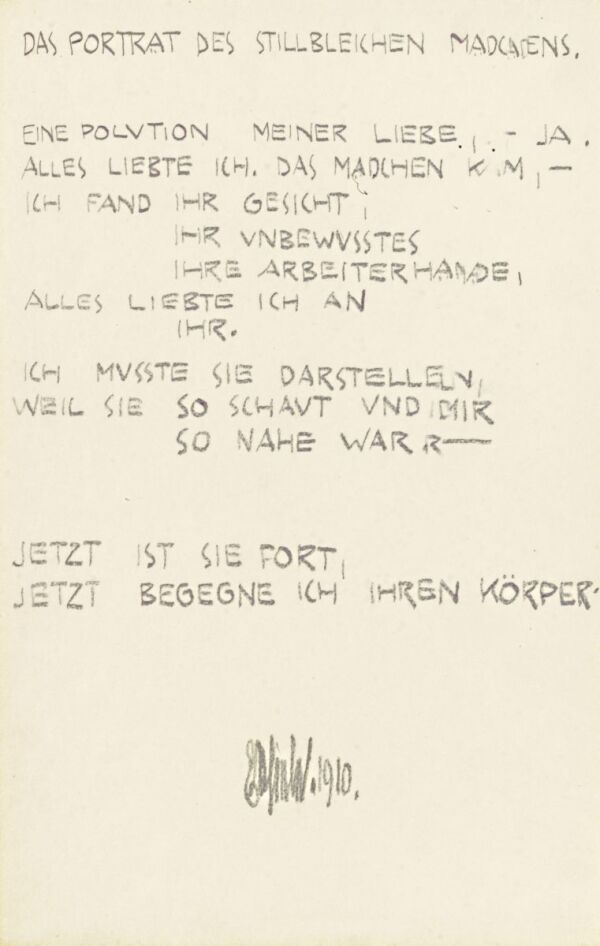 DAS PORTRAT DES STILLBLEICHEN MADCHENS.
EINE POLVTION MEINER LIEBE, – JA.
ALLES LIEBTE ICH. DAS MADCHEN KAM, –
ICH FAND IHR GESICHT,
IHR VNBEWVSSTES
IHRE ARBEITERHANDE,
ALLES LIEBTE ICH AN
IHR.
ICH MVSSTE SIE DARSTELLELN,
WEIL SIE SO SCHAVT VND MIR
SO NAHE WAR
JETZT IST SIE FORT,
JETZT BEGEGNE ICH IHREN KÖRPER.
1910.